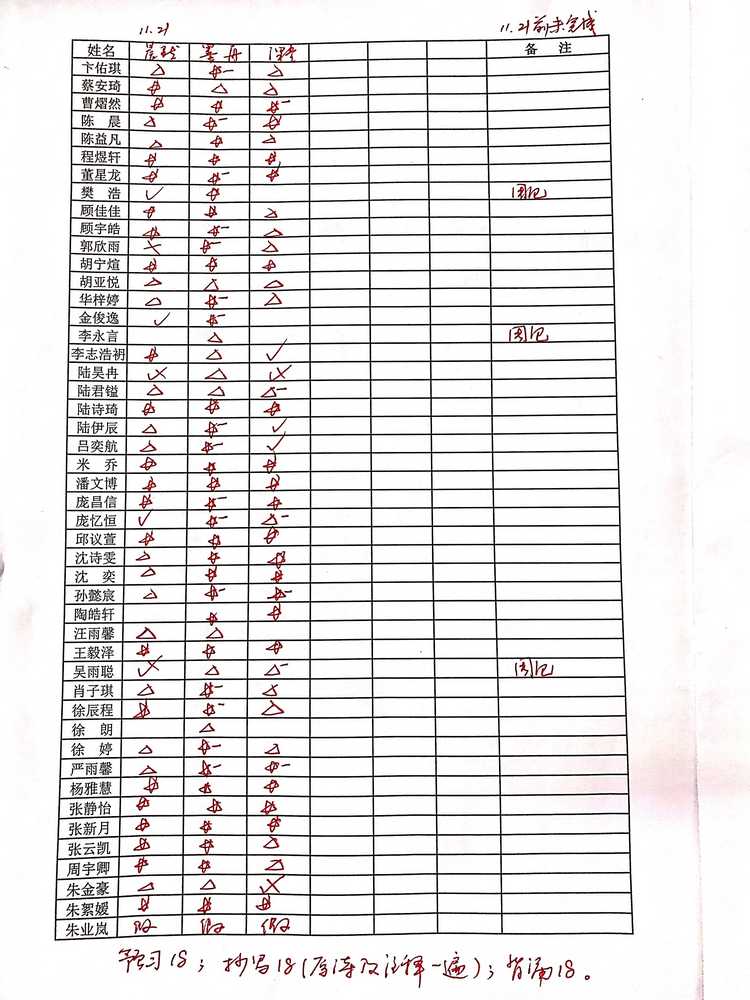 11.21 11.21前未完成
姓名 晨读 墨舟 课本 备 注
卞佑琪 △ ☆- △
蔡安琦 ☆ △ △
曹熠然 ☆ ☆ ☆-
陈 晨 △ ☆- ☆
陈益凡 △ ☆ △
程煜轩 ☆ ☆ ☆
董星龙 ☆ ☆- ☆
樊 浩 ✓ ☆ 周记
顾佳佳 ☆ ☆ △
顾宇皓 ☆ ☆- △
郭欣雨 ☆- △
胡宁煊 ☆ ☆ ☆
胡亚悦 △ △ △
华梓婷 △ ☆- △
金俊逸 ✓ ☆-
李永言 △ 周记
李志浩礽 ☆ △ ✓
陆昊冉 △
陆君镒 △ △ △-
陆诗琦 ☆ ☆ ☆
陆伊辰 △ ☆- ✓
吕奕航 △ ☆- ✓
米 乔 ☆ ☆ ☆
潘文博 ☆ ☆ ☆
庞昌信 ☆ ☆- ☆
庞忆恒 ✓ ☆- △-
邱议萱 ☆ ☆ ☆
沈诗雯 △ ☆ ☆
沈 奕 △ ☆ ☆
孙懿宸 △ ☆- ☆-
陶皓轩 ☆ ☆
汪雨馨 △ △
王毅泽 ☆ ☆ ☆
吴雨聪 △ △- 周记
肖子琪 △ ☆- △
徐辰程 ☆ ☆- △
徐 朗 △
徐 婷 △ ☆- △
严雨馨 △ ☆- ☆-
杨雅慧 ☆ ☆ ☆
张静怡 ☆ ☆ ☆
张新月 ☆ ☆ ☆
张云凯 ☆ ☆ △
周宇卿 ☆ ☆ △
朱金豪 △ △
朱絮媛 ☆ ☆ ☆
朱业岚 假 假 假
预习18；抄写18(古诗及注释一遍)；背诵18。